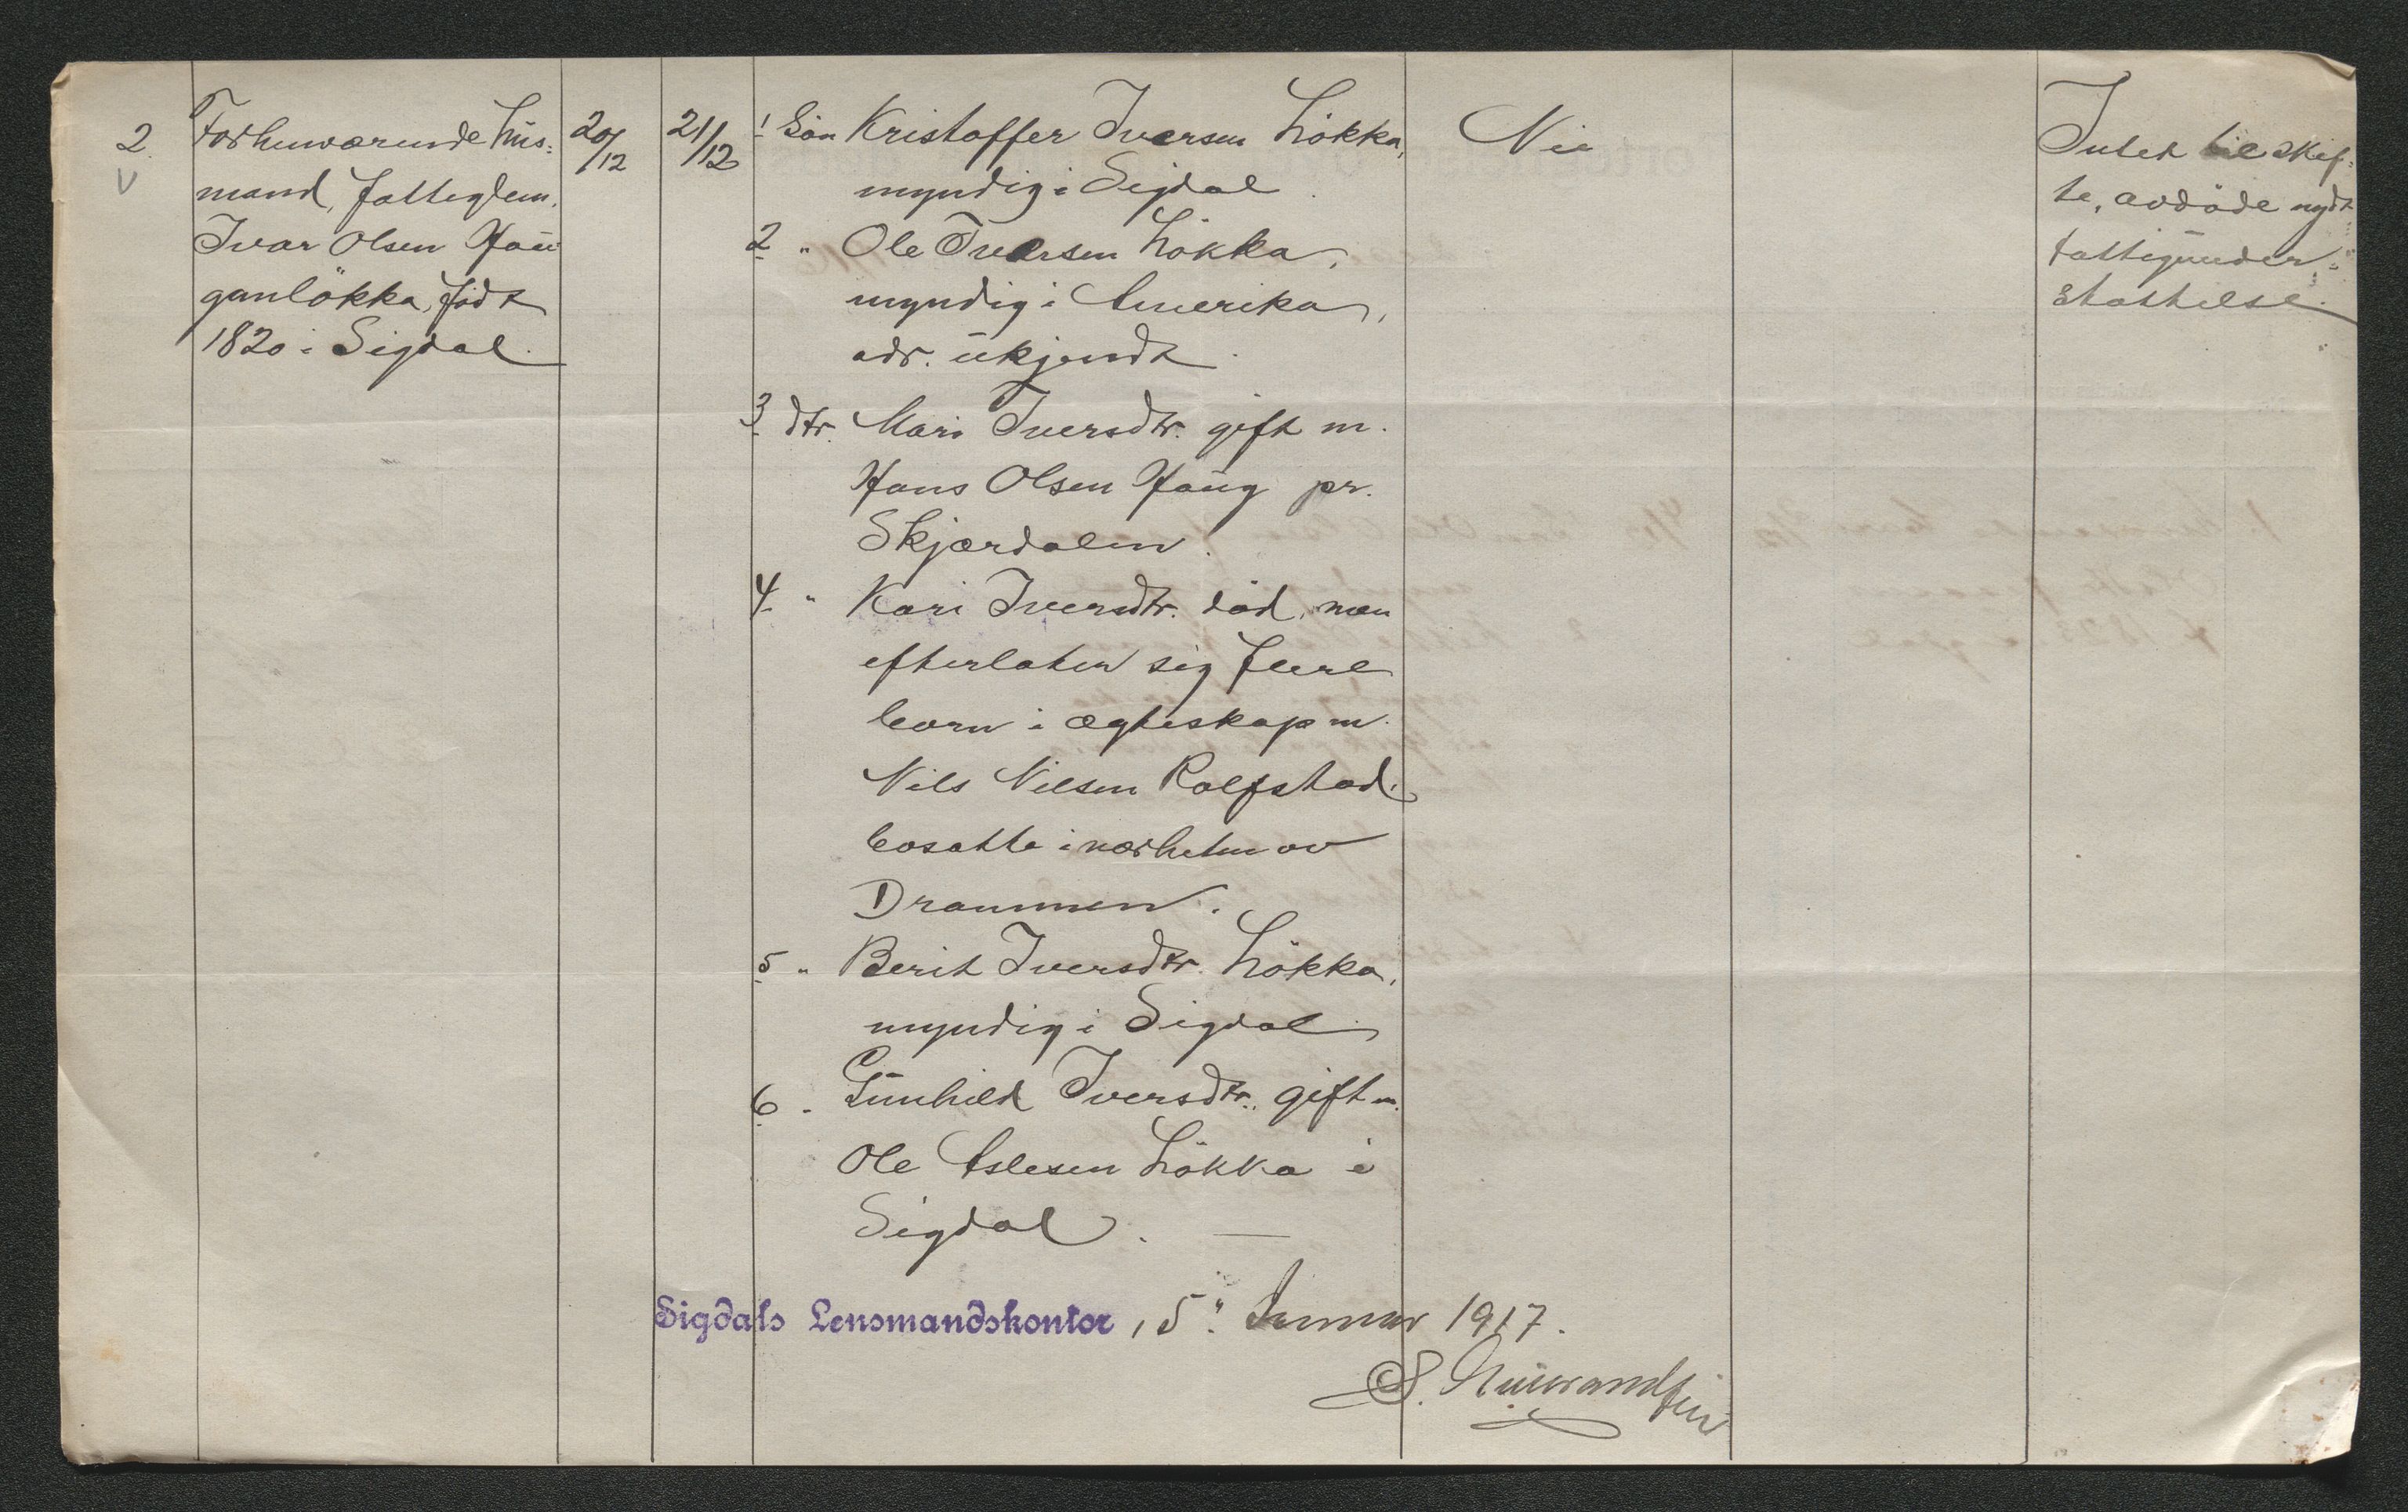 2.
Forhenværende hus-
mand, fattiglem.
Ivar Olsen Hau
ganløkka, født
1820 i Sigdal.
20/12
21/12
1 Søn Kristoffer Iversen Løkka,
myndig i Sigdal.
2 " Ole Iversen Løkka,
myndig i Amerika,
adr. ukjendt.
3 dtr. Mari Iversdtr. gift m.
Hans Olsen Haug pr.
Skjærdalen.
4 " Kari Iversdtr. død, men
efterlater sig flere
born i ægteskap m.
Nils Nilsen Rolfstad.
bosatte i nærheten av
Drammen.
5 " Berit Iversdtr. Løkka,
myndig i Sigdal
6 " Gunhild Iversdtr. gift m.
Ole Aslesen Løkka i
Sigdal.
Nei
Intet til skif-
te, avdøde nydt
fattigunder-
støttelse.
Sigdals Lensmandskontor, 5. Januar 1917.